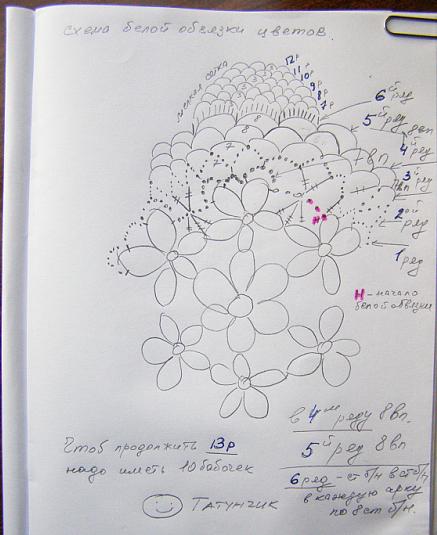 схема белой обвязки цветов.
мелкая сетка
12р
11р
10р
9р
8р
7р
3
3
3
3
8
8
7
7
6й ряд
5й ряд 8вп
4й ряд
7вп
3й ряд
7вп
2ой ряд
1 ряд
Н
Н - начало
белой обвязки
в 4м ряду 8вп.
5й ряд 8вп
6 ряд - ст б/н в ст б/н
в каждую арку
по 8 ст б/н.
Чтоб продолжить 13р
надо иметь 10 бабочек
Татунчик